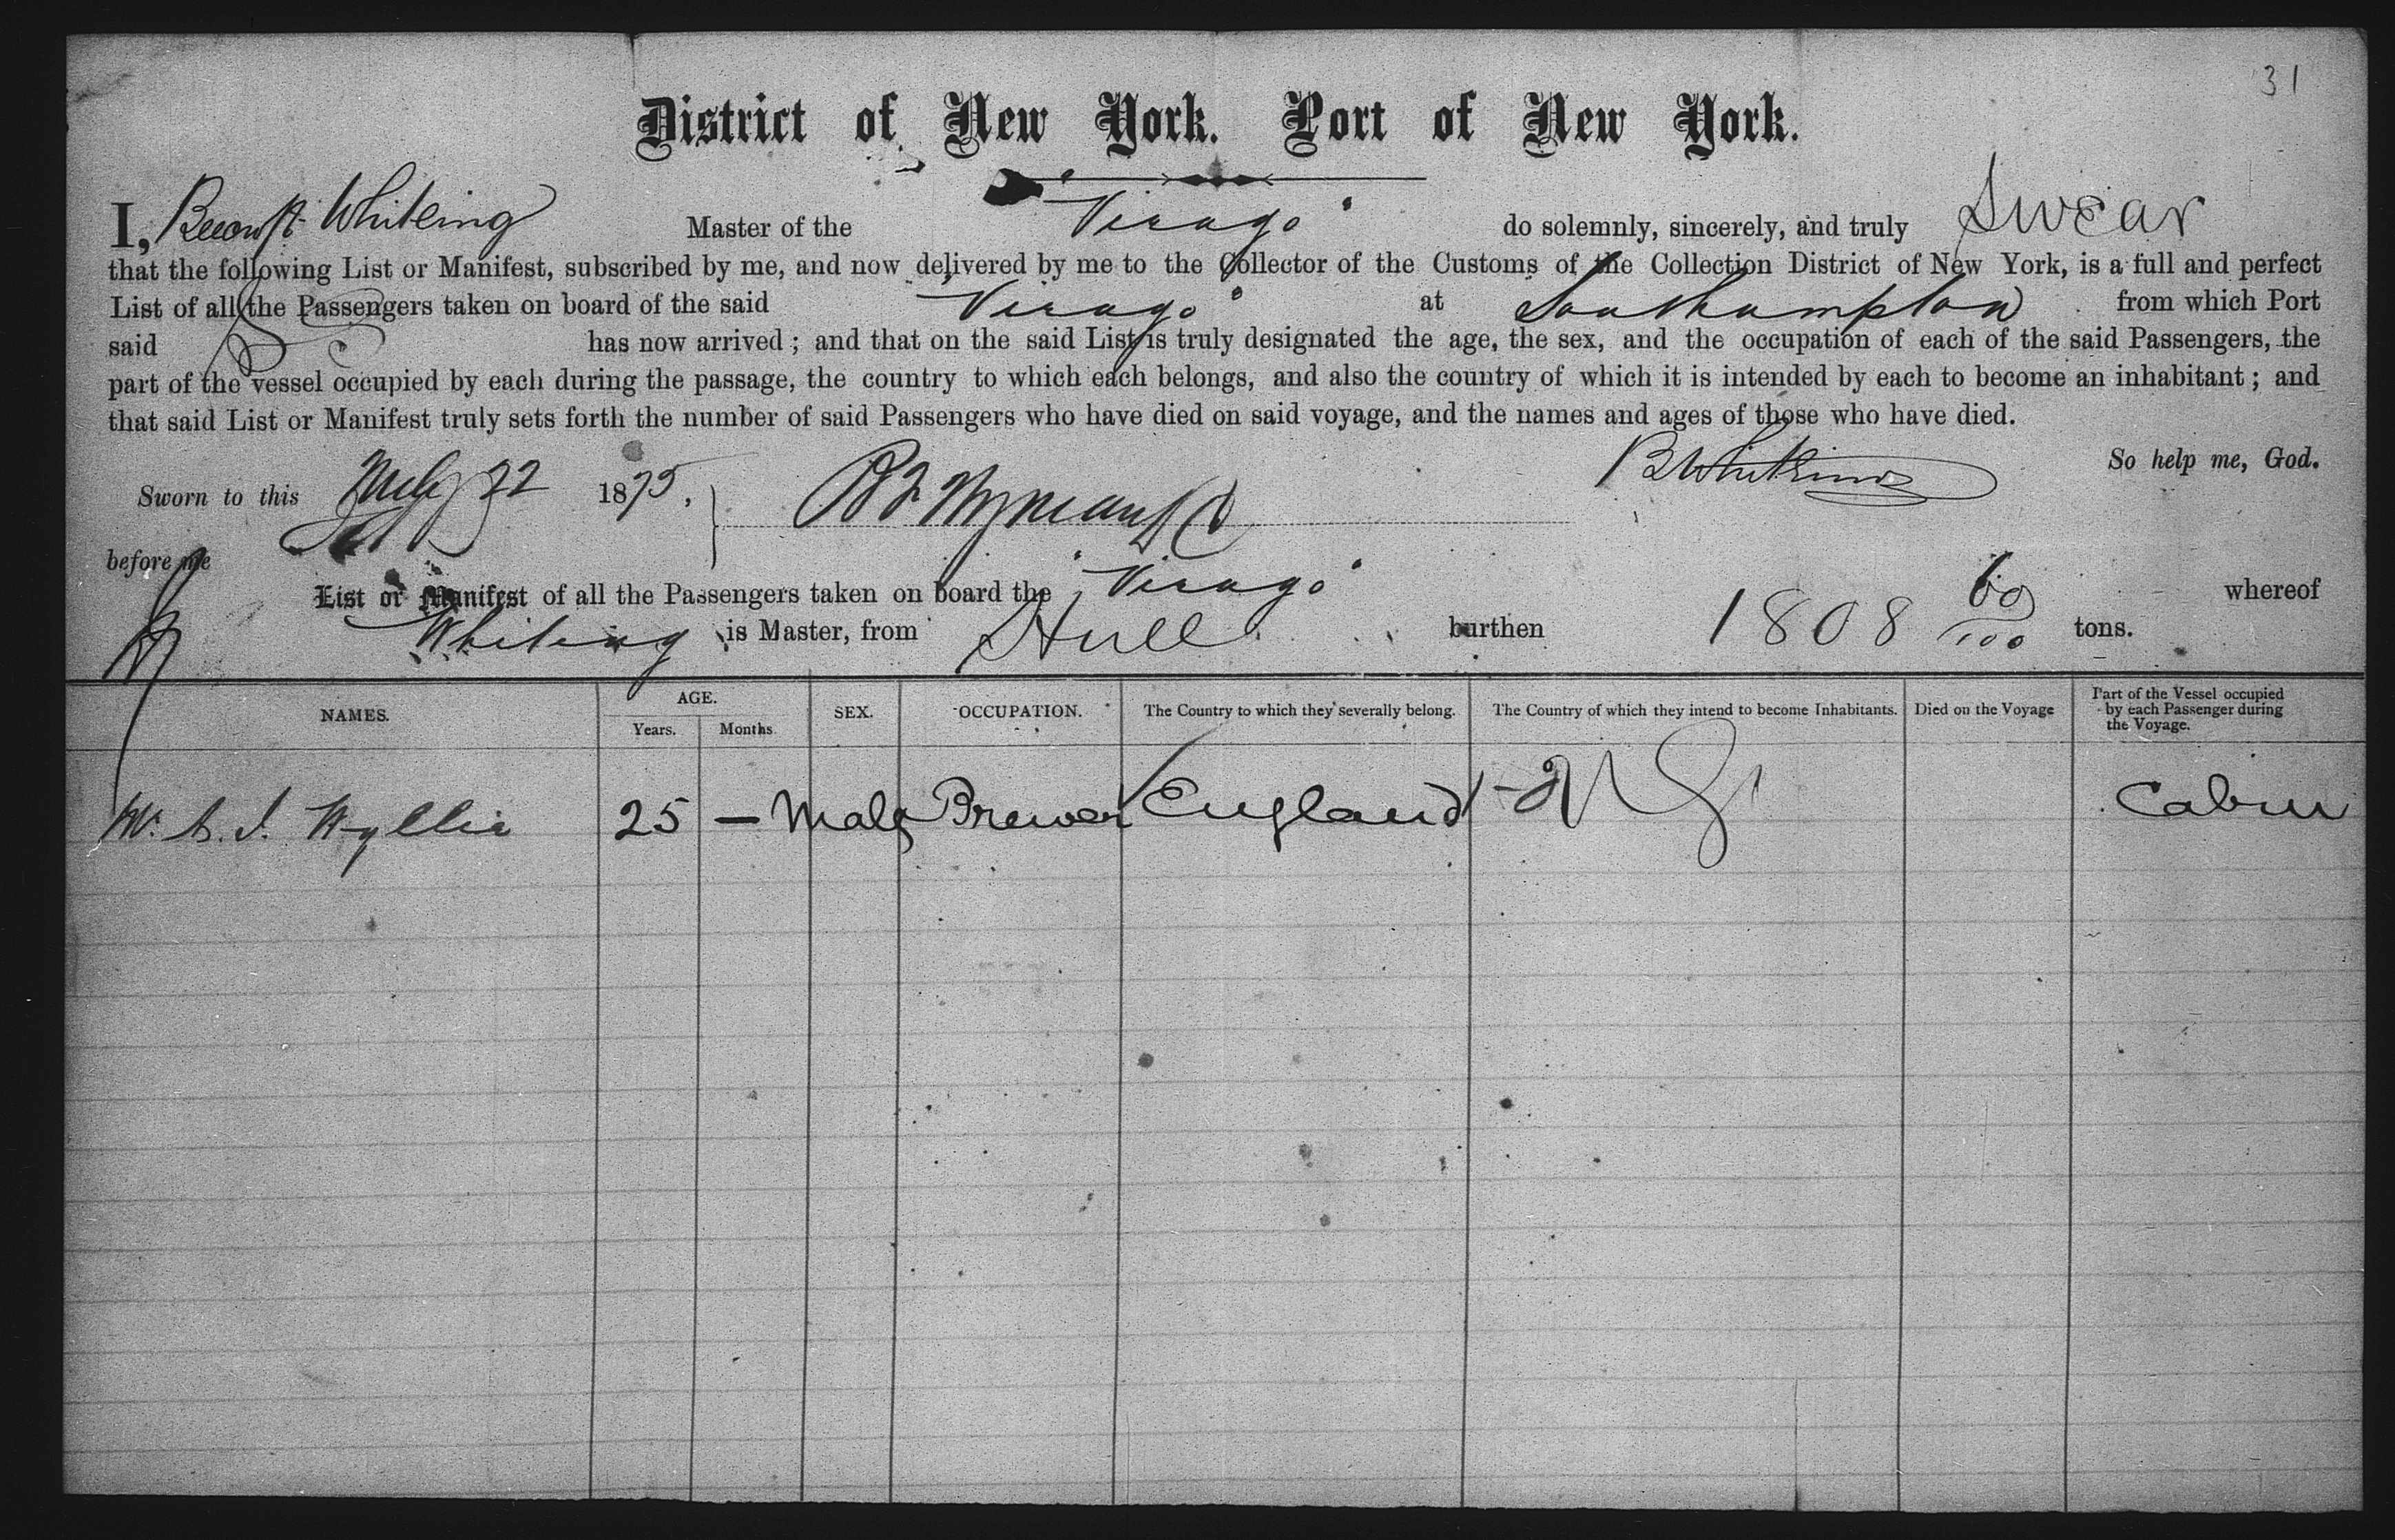 31
District of New York. Port of New York.
I, Whiteing Master of the "Virago" do solemnly, sincerely, and truly Swear
that the following List or Manifest, subscribed by me, and now delivered by me to the Collector of the Customs of the Collection District of New York, is a full and perfect
List of all the Passengers taken on board of the said "Virago" at Southampton from which Port
said has now arrived; and that on the said List is truly designated the age, the sex, and the occupation of each of the said Passengers, the
part of the vessel occupied by each during the passage, the country to which each belongs, and also the country of which it is intended by each to become an inhabitant; and
that said List or Manifest truly sets forth the number of said Passengers who have died on said voyage, and the names and ages of those who have died.
So help me, God.
Sworn to this July 22 1875, B Whiteing
before me
List or Manifest of all the Passengers taken on board the "Virago" whereof
Whiteing is Master, from Hull burthen 1808 60/100 tons.
NAMES. AGE. Years. Months SEX. OCCUPATION. The Country to which they severally belong. The Country of which they intend to become Inhabitants. Died on the Voyage Part of the Vessel occupied by each Passenger during the Voyage.
Mr. Wyllie 25 — Male Brewer England Cabin